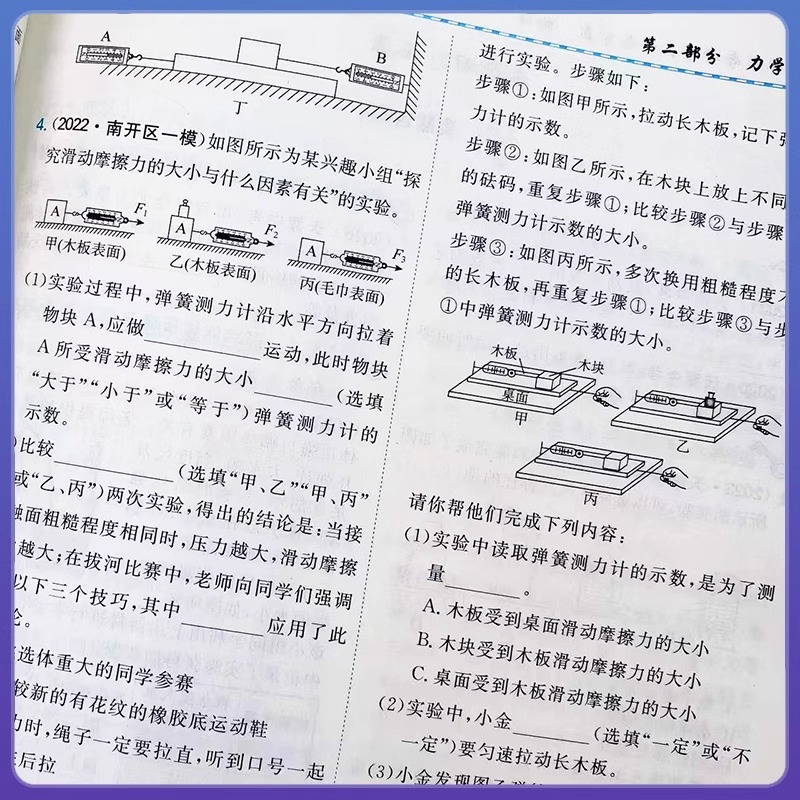 A
B
丁
4. (2022·南开区一模)如图所示为某兴趣小组“探
究滑动摩擦力的大小与什么因素有关”的实验。
A F₁
A F₂
A F₃
甲(木板表面)
乙(木板表面)
丙(毛巾表面)
(1)实验过程中,弹簧测力计沿水平方向拉着
物块 A,应做________运动,此时物块
A 所受滑动摩擦力的大小________(选填
“大于”“小于”或“等于”)弹簧测力计的
示数。
)比较________(选填“甲、乙”“甲、丙”
或“乙、丙”)两次实验,得出的结论是:当接
触面粗糙程度相同时,压力越大,滑动摩擦
越大;在拔河比赛中,老师向同学们强调
以下三个技巧,其中________应用了此
论。
选体重大的同学参赛
较新的有花纹的橡胶底运动鞋
力时,绳子一定要拉直,听到口号一起
后拉
第二部分 力学
进行实验。步骤如下:
步骤①:如图甲所示,拉动长木板,记下弹
力计的示数。
步骤②:如图乙所示,在木块上放上不同
的砝码,重复步骤①;比较步骤②与步骤
弹簧测力计示数的大小。
步骤③:如图丙所示,多次换用粗糙程度不
的长木板,再重复步骤①;比较步骤③与步
①中弹簧测力计示数的大小。
木板
木块
桌面
甲
乙
丙
请你帮他们完成下列内容:
(1)实验中读取弹簧测力计的示数,是为了测
量________。
A. 木板受到桌面滑动摩擦力的大小
B. 木块受到木板滑动摩擦力的大小
C. 桌面受到木板滑动摩擦力的大小
(2)实验中,小金________(选填“一定”或“不
一定”)要匀速拉动长木板。
(3)小金发现图乙弹